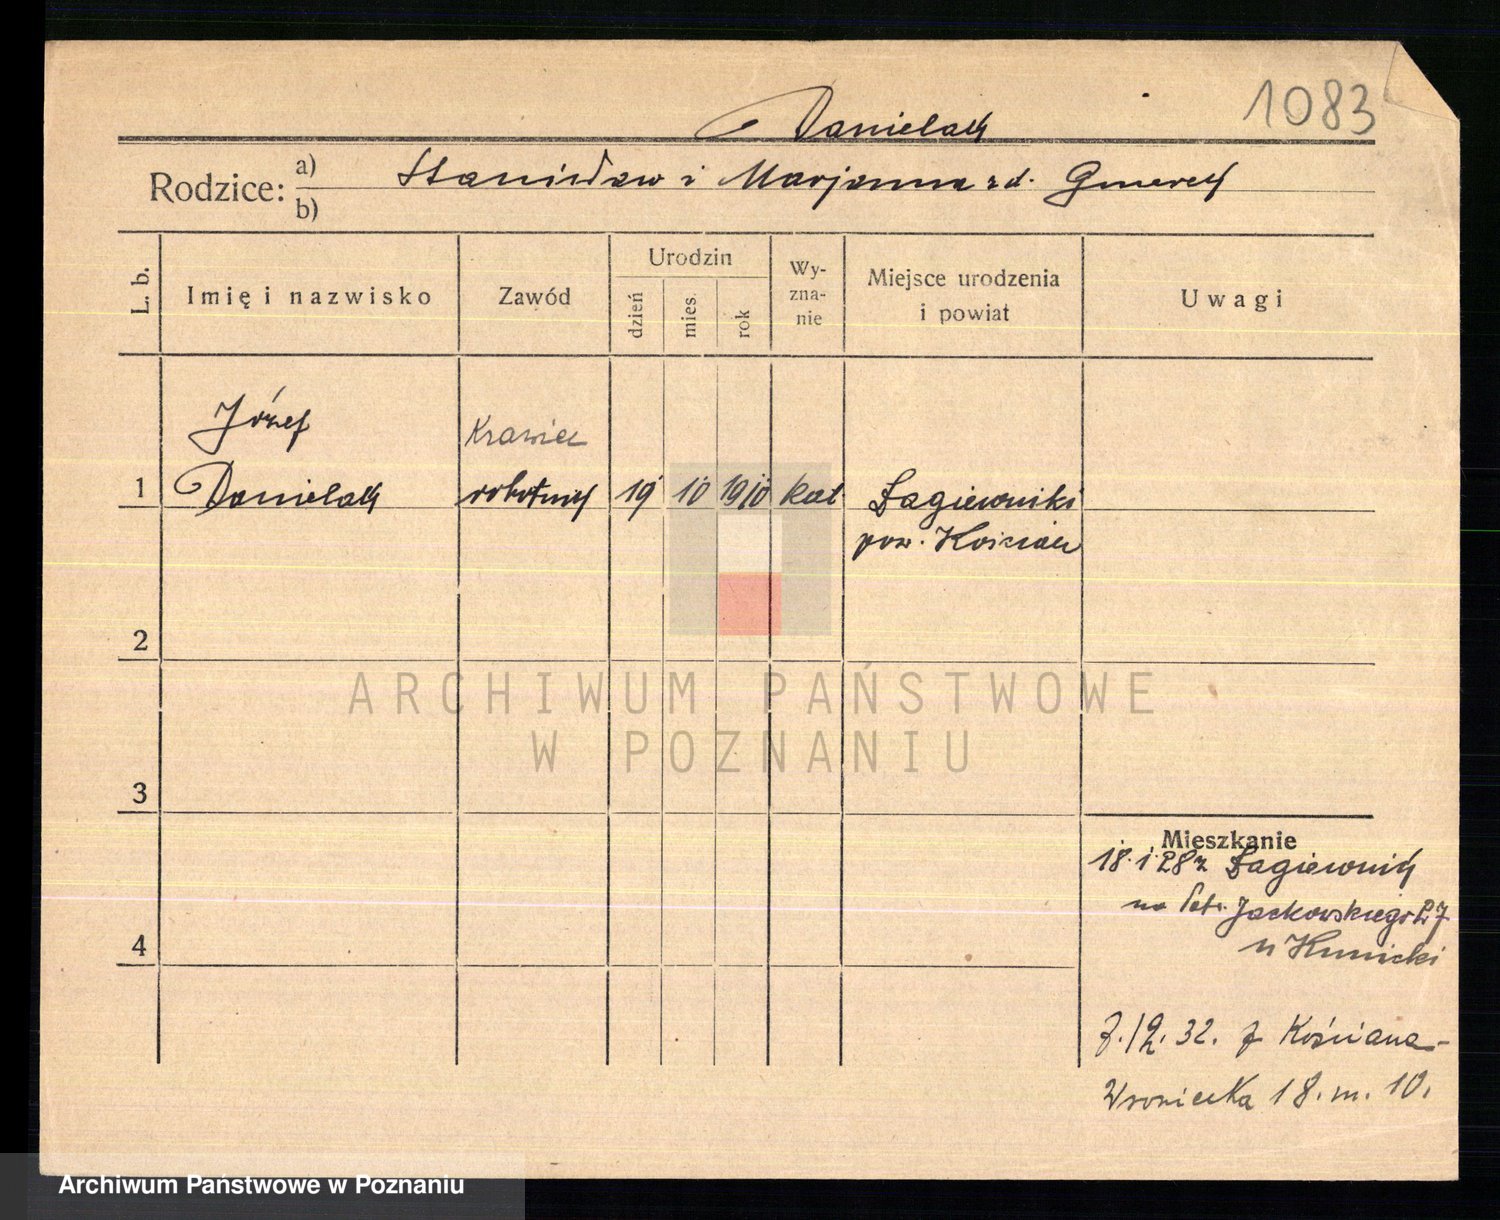 1083
Danielak
Rodzice: a) Stanisław i Marjanna zd.
b)
L. b.
Imię i nazwisko
Zawód
Urodzin
dzień
mies.
rok
Wy-
zna-
nie
Miejsce urodzenia
i powiat
Uwagi
Józef
Krawiec
1 Danielak robotnik 19 10 1910 kat Łagiewniki
pow. Kościan
2
ARCHIWUM PAŃSTWOWE
W POZNANIU
3
Mieszkanie
18.1.28 z Łagiewnik
na Jackowskiego 27
u Kunicki
7.12.32. z Kościana-
Wroniecka 18. m. 10.
4
Archiwum Państwowe w Poznaniu